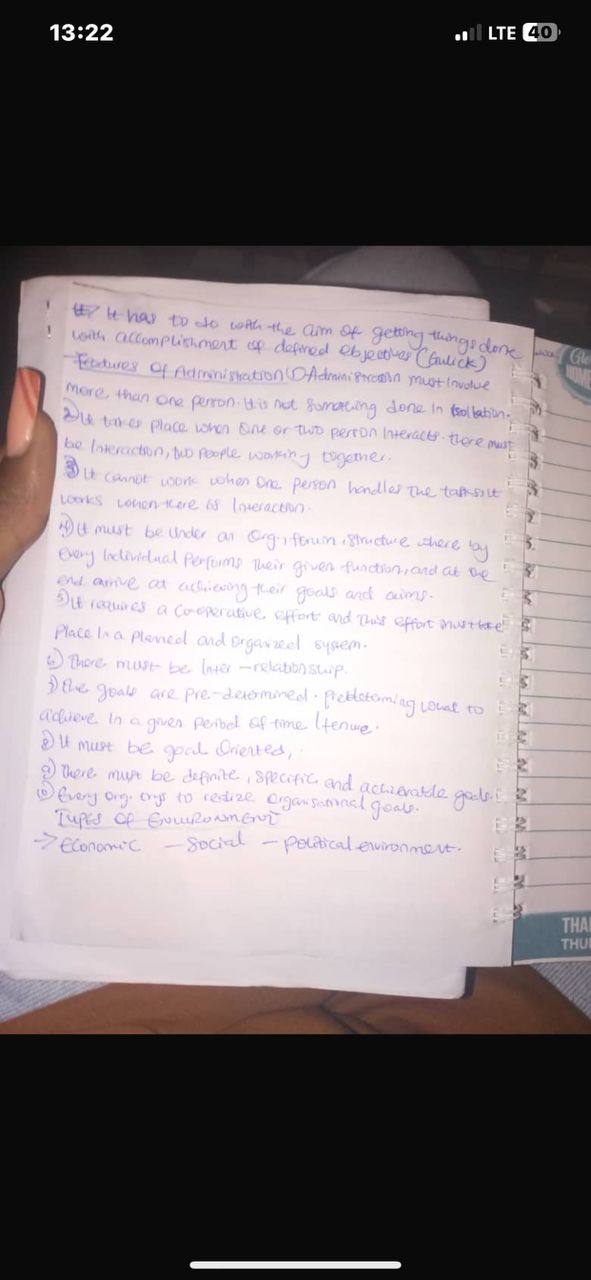 13:22
LTE 40
It has to do with the aim of getting things done
with accomplishment of defined objectives (Gulick)
Features of Administration ① Administration must involve
more than one person. It is not something done in
② It takes place when one or two person interacts. there must
be interaction, two people working together.
③ It cannot work when one person handles the tasks. It
works when there is Interaction.
④ It must be under an Org., forum, structure where by
every individual performs their given function, and at the
end arrive at achieving their goals and aims.
⑤ It requires a co-operative effort and this effort must take
place in a planned and organized system.
⑥ There must be Inter-relationship.
⑦ The goals are pre-determined. what to
achieve in a given period of time / tenure.
⑧ It must be goal Oriented,
⑨ There must be definite, specific and achievable goals.
⑩ Every org. trys to realize organisational goals.
TYPES OF ENVIRONMENT
→ Economic - Social - political environment.
THU